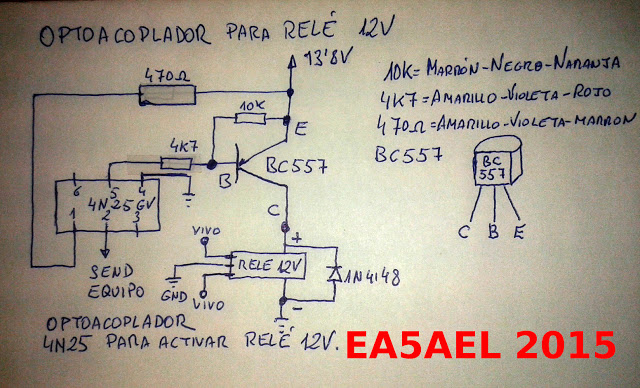 OPTOACOPLADOR PARA RELÉ 12V
470Ω
13'8V
10K = MARRÓN-NEGRO-NARANJA
4K7 = AMARILLO-VIOLETA-ROJO
470Ω = AMARILLO-VIOLETA-MARRÓN
BC557
10K
E
4K7
B
BC557
BC
557
C B E
6 5 4
4N25GV
1 2 3
C
+
VIVO
RELE 12V
1N4148
SEND
EQUIPO
GND
VIVO
-
OPTOACOPLADOR
4N25 PARA ACTIVAR RELÉ 12V.
EA5AEL 2015